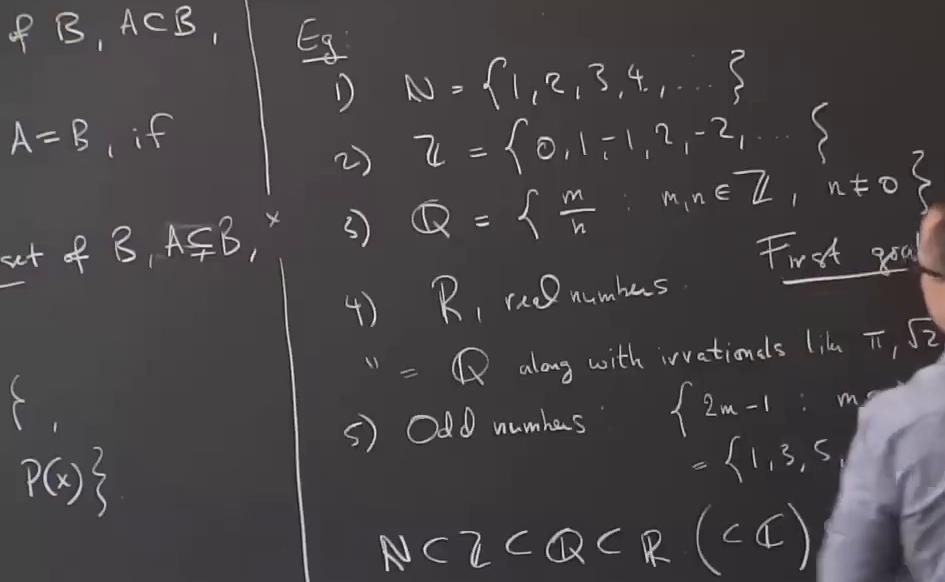 of B, A⊂B,
A=B, if
set of B, A⊊B,
{ ,
P(x)}.
Eg:
1) ℕ = {1, 2, 3, 4, ... }
2) ℤ = {0, 1, -1, 2, -2, ... }
3) ℚ = { m/n : m, n ∈ ℤ, n ≠ 0 }
First goa
4) ℝ, real numbers.
" = ℚ along with irrationals like π, √2
5) Odd numbers : { 2m - 1 : m
= {1, 3, 5,
ℕ ⊂ ℤ ⊂ ℚ ⊂ ℝ (⊂ ℂ)